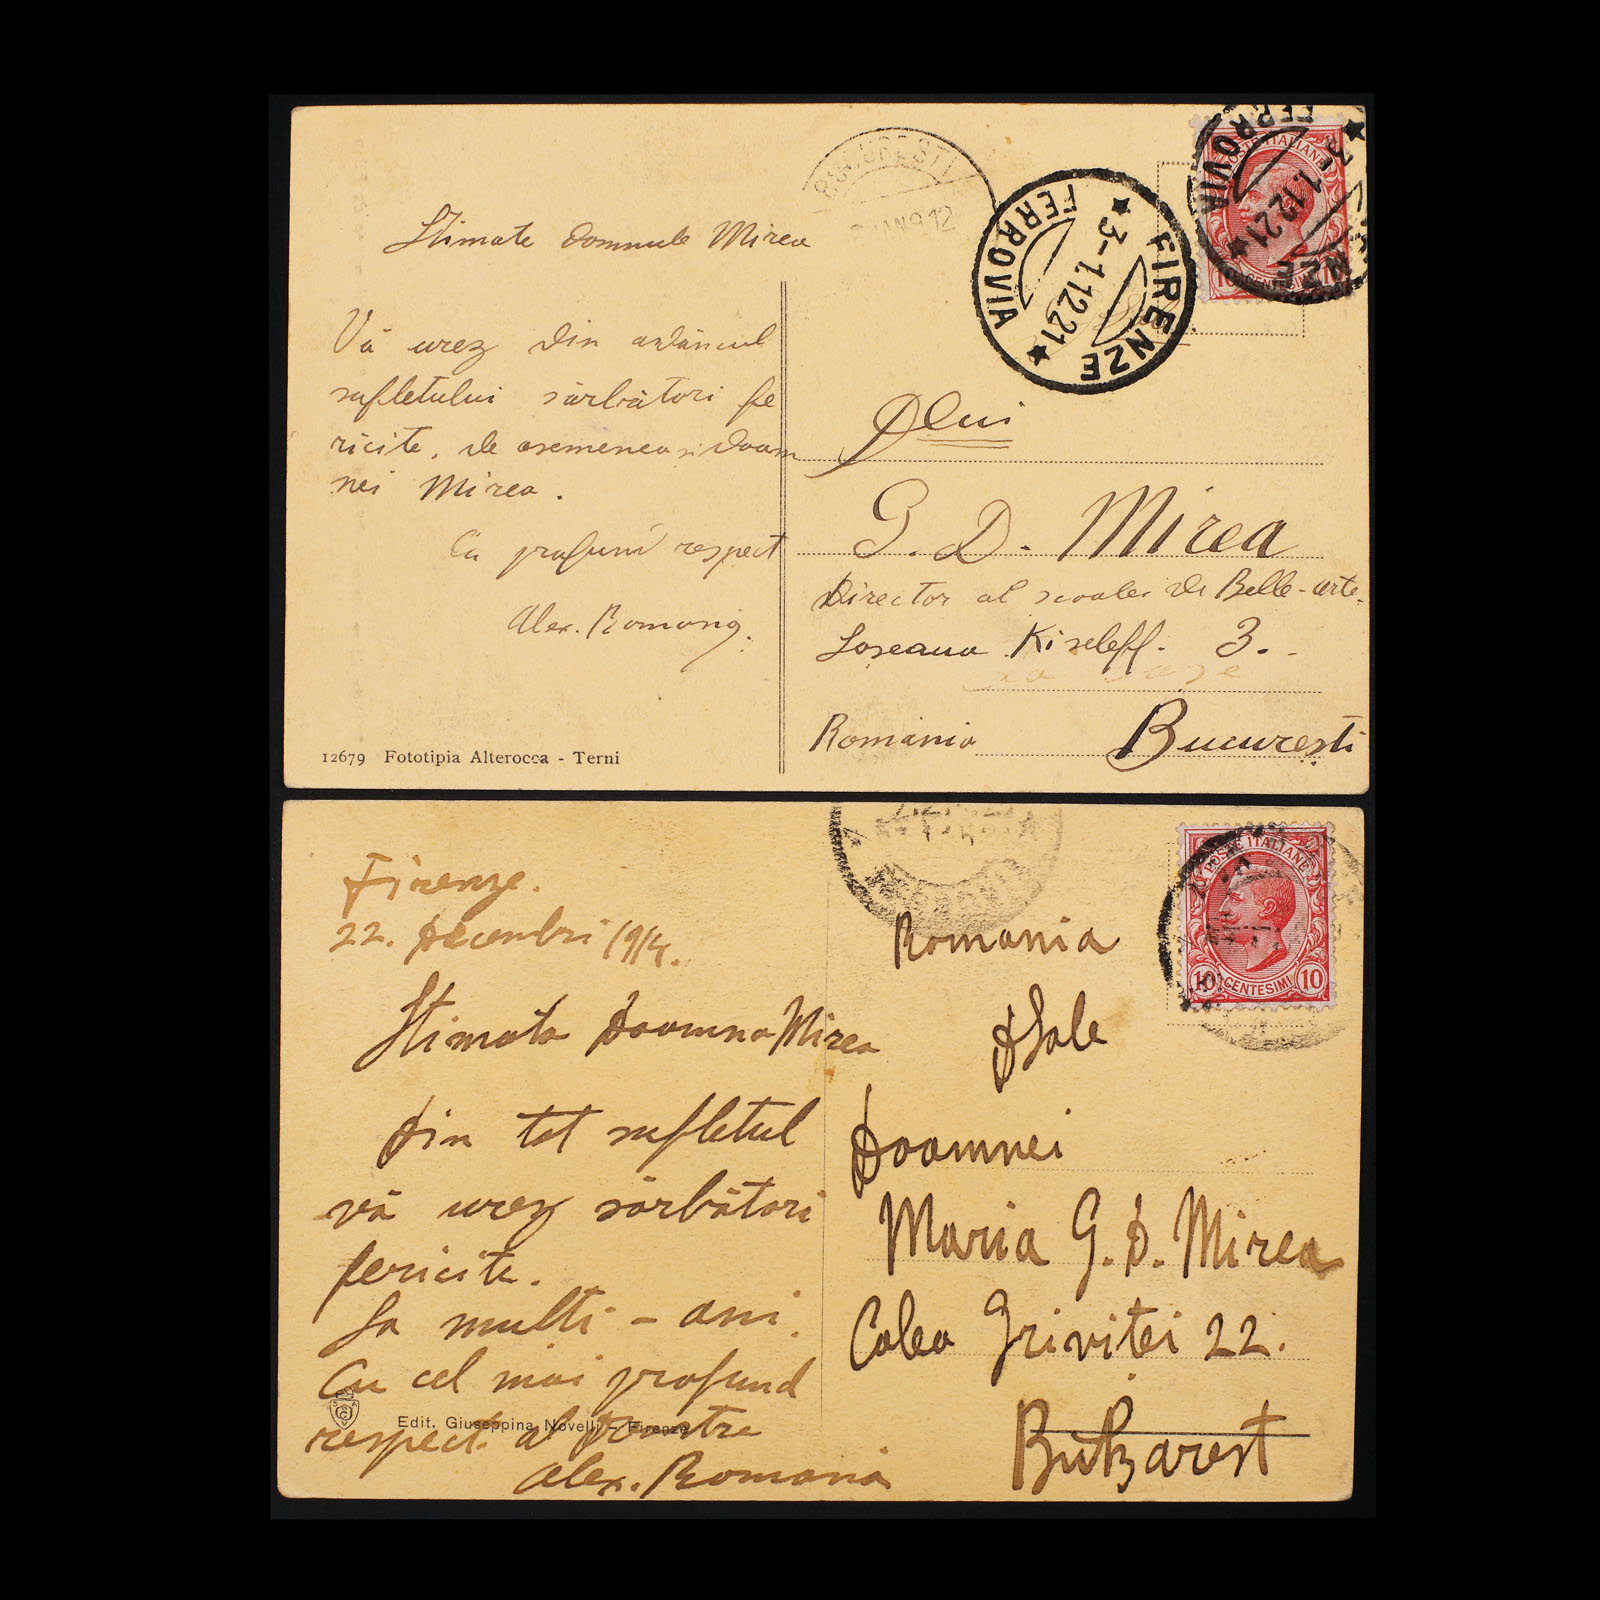 BUCURESTI
IAN 912
FIRENZE
FERROVIA
3-1.12.21
FERROVIA
1.12.21
POSTE ITALIANE
10 CENTESIMI 10
Stimate Domnule Mirea
Vă urez din adâncul
sufletului sărbători fe
ricite, de asemenea și Doam
nei Mirea.
Cu profund respect
Alex. Romano
12679 Fototipia Alterocca - Terni
Dlui
G. D. Mirea
Director al scoalei de Belle-arte.
Soseaua Kiseleff. 3.
România
București
Firenze.
22. Decembri 1914.
Stimata Doamna Mirea
Din tot sufletul
vă urez sărbători
fericite.
La multi - ani.
Cu cel mai profund
respect. al Dvoastre
Alex. Romano
Edit. Giuseppina Novelli - Firenze
POSTE ITALIANE
10 CENTESIMI 10
Romania
DSale
Doamnei
Maria G. D. Mirea
Calea Griviței 22.
Bukarest